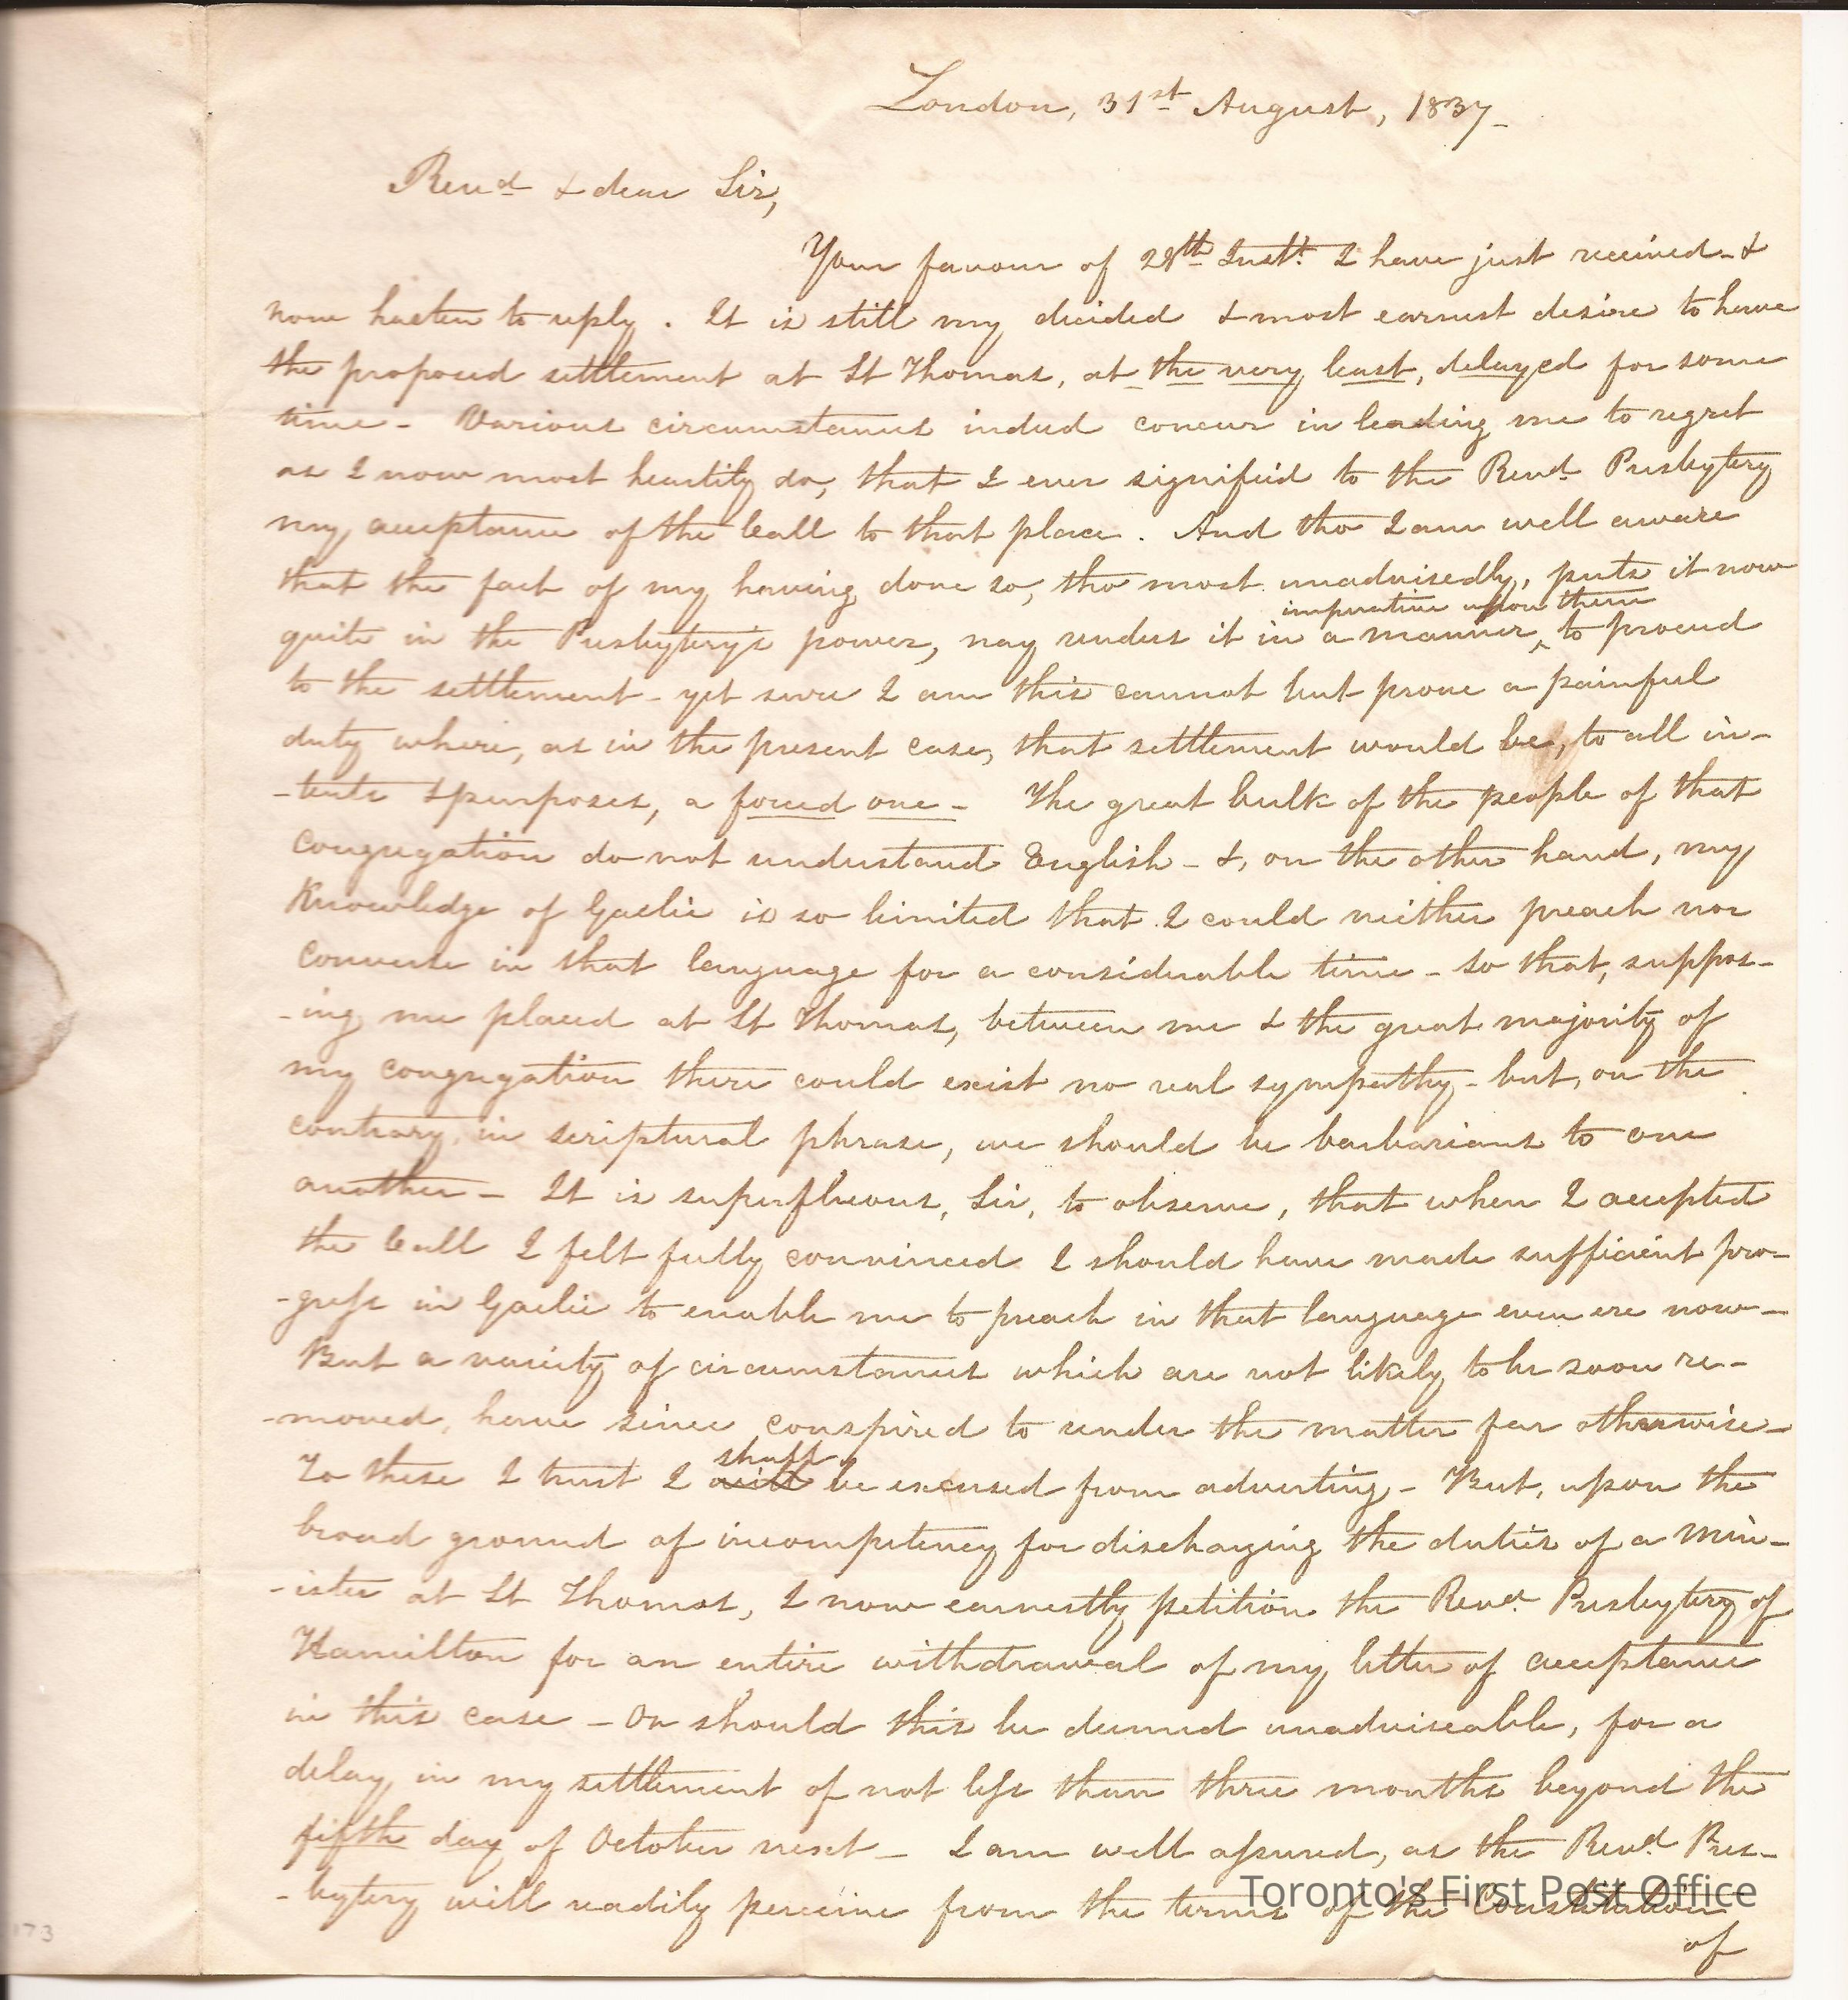 London, 31st August, 1837_
Revd & dear Sir,
Your favour of 28th Instt. I have just received - &
now hasten to reply. It is still my decided & most earnest desire to have
the proposed settlement at St Thomas, at the very least, delayed for some
time - Various circumstances indeed concur in leading me to regret
as I now most heartily do, that I ever signified to the Revd. Presbytery
my acceptance of the Call to that place. And tho I am well aware
that the fact of my having done so, tho most unadvisedly, puts it now
imperative upon them
quite in the Presbytery's power, nay renders it in a manner, ^ to proceed
to the settlement - yet sure I am this cannot but prove a painful
duty where, as in the present case, that settlement would be, to all in-
-tents & purposes, a forced one - The great bulk of the people of that
congregation do not understand English - &, on the other hand, my
knowledge of Gaelic is so limited that I could neither preach nor
converse in that language for a considerable time - so that, suppos-
-ing me placed at St Thomas, between me & the great majority of
my congregation there could exist no real sympathy - but, on the
contrary, in scriptural phrase, we should be barbarians to one
another - It is superfluous, Sir, to observe, that when I accepted
the Call I felt fully convinced I should have made sufficient pro-
-gress in Gaelic to enable me to preach in that language even ere now -
But a variety of circumstances which are not likely to be soon re-
-moved, have since conspired to render the matter far otherwise -
shall
To these I trust I will be excused from adverting - But, upon the
broad ground of incompetency for discharging the duties of a Min-
-ister at St Thomas, I now earnestly petition the Revd. Presbytery of
Hamilton for an entire withdrawal of my letter of acceptance
in this case - Or should this be deemed unadviseable, for a
delay in my settlement of not less than three months beyond the
fifth day of October next - I am well assured, as the Revd. Pres-
-bytery will readily perceive from the terms of the Constitution
of
Toronto's First Post Office
173